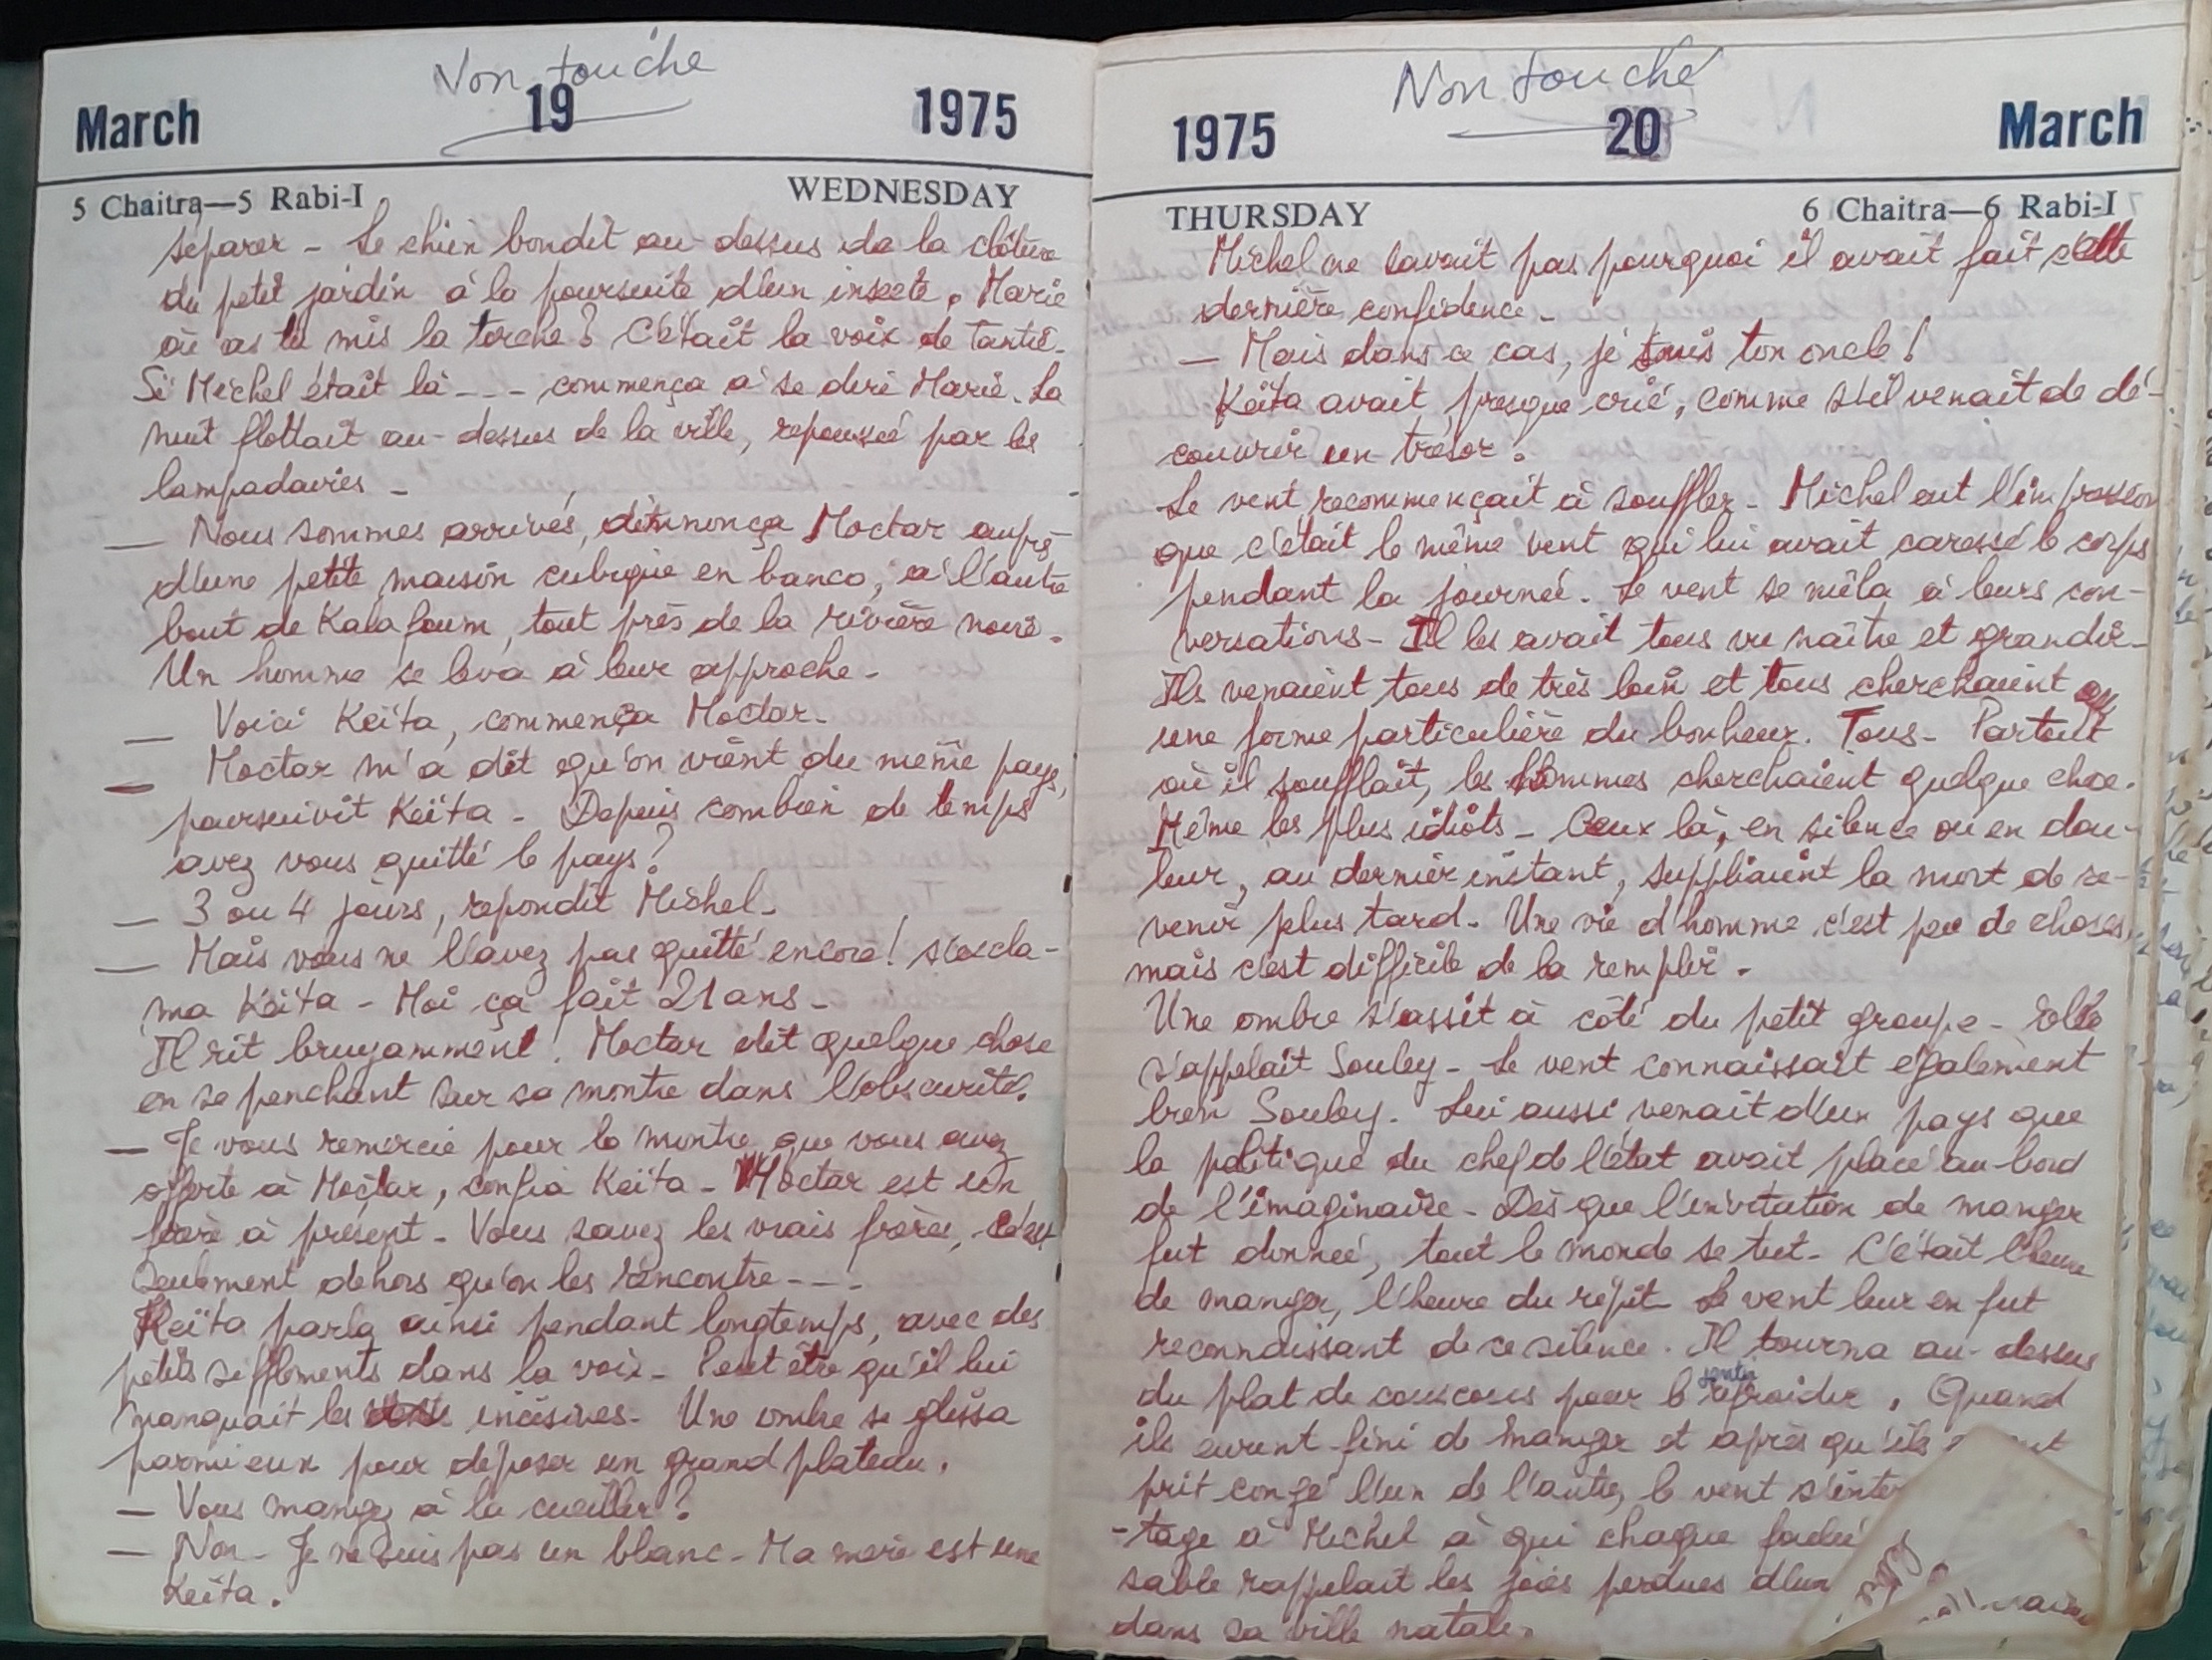 Non touché
March 19 1975
5 Chaitra—5 Rabi-I WEDNESDAY
séparer - Le chien bondit au-dessus de la clôture
du petit jardin à la poursuite d'un insecte. Marie
où as tu mis la torche ? C'était la voix de Tantie.
Si Michel était là --- commença à se dire Marie. La
nuit flottait au-dessus de la ville, repoussée par les
lampadaires -
— Nous sommes arrivés, annonça Moctar auprès
d'une petite maison cubique en banco, à l'autre
bout de Kalafoum, tout près de la rivière noire.
Un homme se leva à leur approche -
— Voici Keïta, commença Moctar.
— Moctar m'a dit qu'on vient du même pays,
poursuivit Keïta - Depuis combien de temps
avez vous quitté le pays ?
— 3 ou 4 jours, répondit Michel.
— Mais vous ne l'avez pas quitté encore ! s'excla-
ma Keïta - Moi ça fait 21 ans -
Il rit bruyamment ! Moctar dit quelque chose
en se penchant sur sa montre dans l'obscurité.
— Je vous remercie pour la montre que vous avez
offerte à Moctar, confia Keïta - Moctar est un
frère à présent - Vous savez les vrais frères, c'est
seulement dehors qu'on les rencontre ---
Keïta parla ainsi pendant longtemps, avec des
petits sifflements dans la voix - Peut être qu'il lui
manquait les incisives - Une ombre se glissa
parmi eux pour déposer un grand plateau.
— Vous mangez à la cuiller ?
— Non - Je ne suis pas un blanc - Ma mère est une
Keïta.
Non touché
1975 20 March
THURSDAY 6 Chaitra—6 Rabi-I
Michel ne savait pas pourquoi il avait fait cette
dernière confidence -
— Mais dans ce cas, je suis ton oncle !
Keïta avait presque crié, comme s'il venait de dé-
couvrir un trésor.
Le vent recommençait à souffler - Michel eut l'impression
que c'était le même vent qui lui avait caressé le corps
pendant la journée. Le vent se mêla à leurs con-
versations - Il les avait tous vu naître et grandir -
Ils venaient tous de très loin et tous cherchaient
une forme particulière du bonheur. Tous - Partout
où il soufflait, les hommes cherchaient quelque chose.
Même les plus idiots - Ceux là, en silence ou en dou-
leur, au dernier instant, suppliaient la mort de re-
venir plus tard - Une vie d'homme c'est peu de choses,
mais c'est difficile de la remplir.
Une ombre s'assit à côté du petit groupe - Elle
s'appelait Souley - Le vent connaissait également
bien Souley. Lui aussi venait d'un pays que
la politique du chef de l'état avait placé au bord
de l'imaginaire - Dès que l'invitation de manger
fut donnée, tout le monde se tut - C'était l'heure
de manger, l'heure du répit - Le vent leur en fut
reconnaissant de ce silence. Il tourna au-dessus
du plat de couscous pour le refroidir. Quand
ils eurent fini de manger et après qu'ils
prit congé l'un de l'autre, le vent
-tage à Michel à qui chaque
sable rappelait les joies perdues d'un
dans sa ville natale.